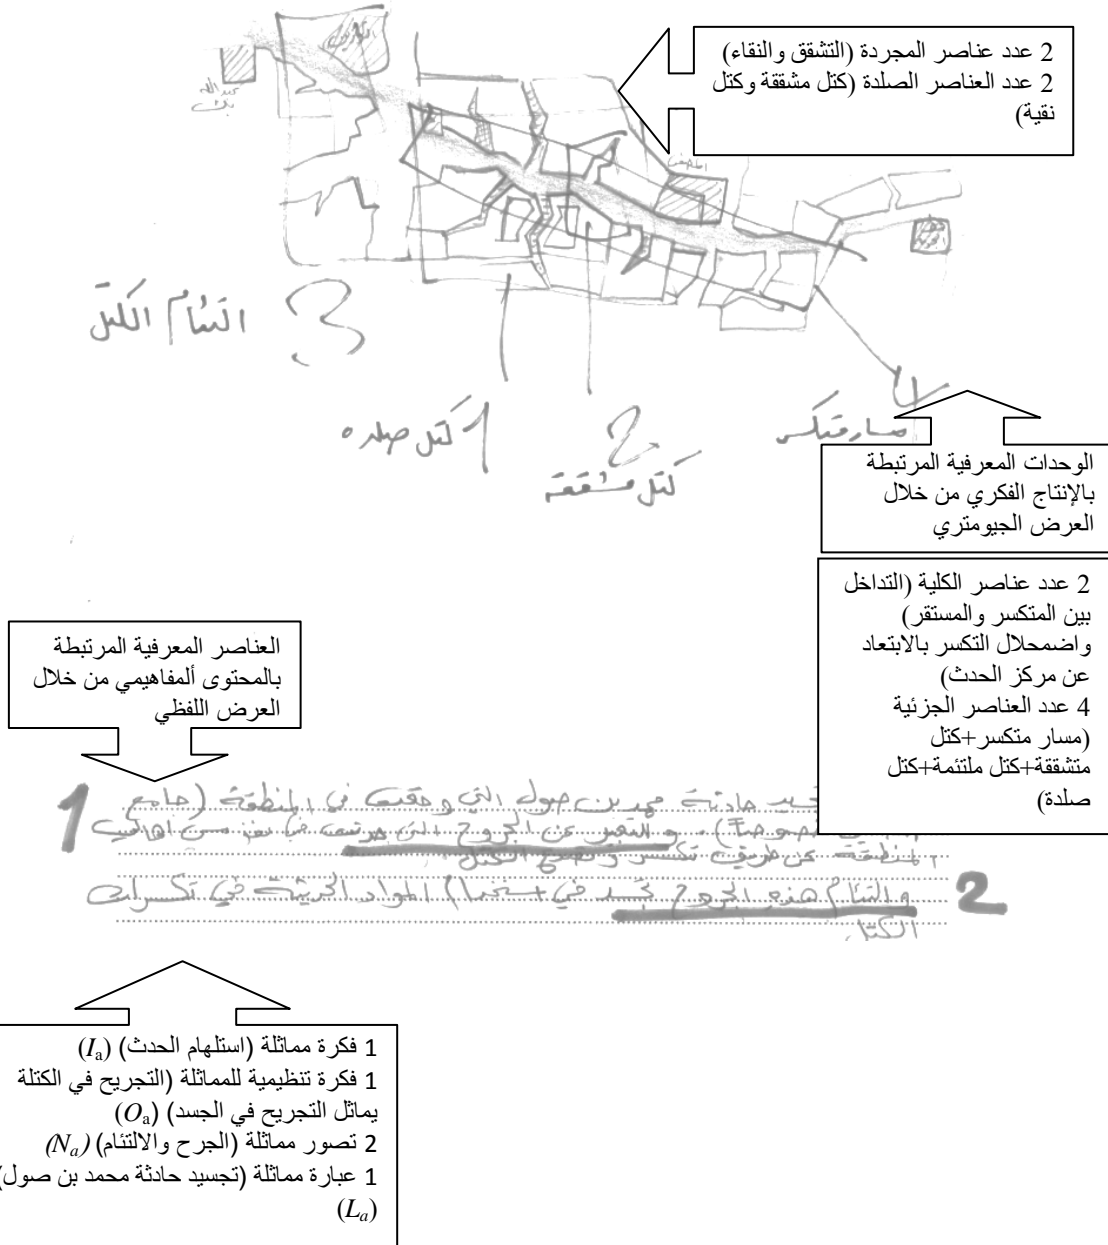 2 عدد عناصر المجردة (التشقق والنقاء)
2 عدد العناصر الصلدة (كتل مشققة وكتل
نقية)
التئام الكتل
3
1 كتل صلده
2
كتل مشققة
مسار متكسر
الوحدات المعرفية المرتبطة
بالإنتاج الفكري من خلال
العرض الجيومتري
2 عدد عناصر الكلية (التداخل
بين المتكسر والمستقر)
واضمحلال التكسر بالابتعاد
عن مركز الحدث)
4 عدد العناصر الجزئية
(مسار متكسر+كتل
متشققة+كتل ملتئمة+كتل
صلدة)
العناصر المعرفية المرتبطة
بالمحتوى ألمفاهيمي من خلال
العرض اللفظي
1
حادثة محمد بن صول التي وقعت في المنطقة (جامع
والتعبير عن الجروح التي
المنطقة عن طريق تكسر الكتل
والتئام هذه الجروح يجسد في استخدام المواد الحديثة في تكسرات
2
الكتل.
1 فكرة مماثلة (استلهام الحدث) (Ia)
1 فكرة تنظيمية للمماثلة (التجريح في الكتلة
يماثل التجريح في الجسد) (Oa)
2 تصور مماثلة (الجرح والالتئام) (Na)
1 عبارة مماثلة (تجسيد حادثة محمد بن صول)
(La)